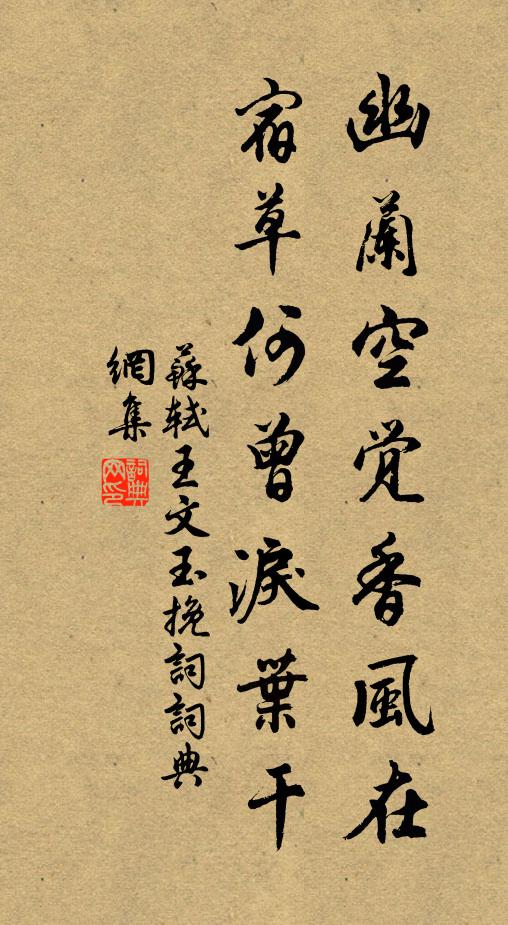 幽蘭空觉香風在
宿草何曾淚葉干
蘇軾王文玉挽詞詞典
網集
詞典
网印